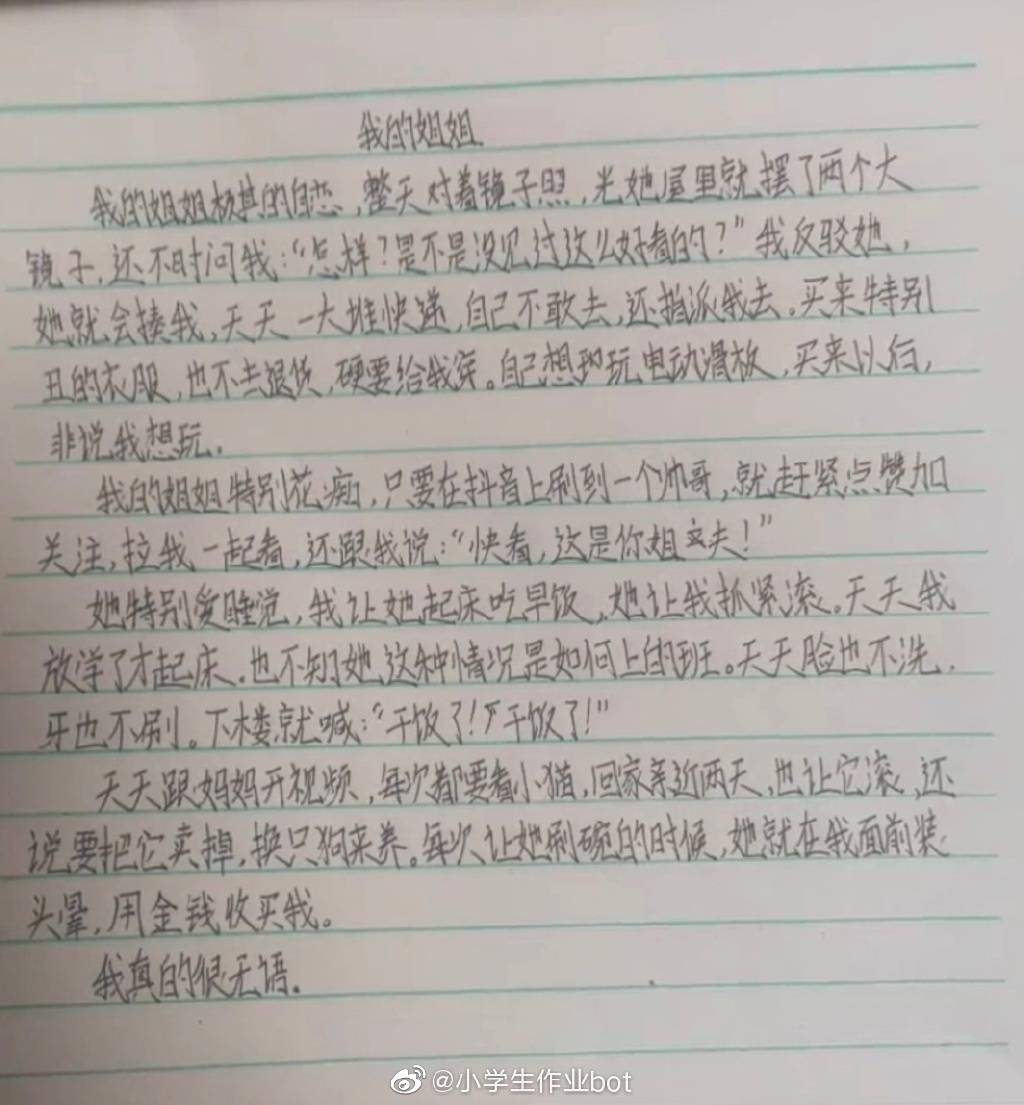 我的姐姐
我的姐姐极其的自恋，整天对着镜子照，光她屋里就摆了两个大
镜子，还不时问我：“怎样？是不是没见过这么好看的？”我反驳她，
她就会揍我，天天一大堆快递，自己不敢去，还指派我去。买来特别
丑的衣服，也不去退货，硬要给我穿。自己想玩电动滑板，买来以后，
非说我想玩。
我的姐姐特别花痴，只要在抖音上刷到一个帅哥，就赶紧点赞加
关注，拉我一起看，还跟我说：“快看，这是你姐丈夫！”
她特别爱睡觉，我让她起床吃早饭，她让我抓紧滚。天天我
放学了才起床。也不知她这种情况是如何上的班。天天脸也不洗，
牙也不刷。下楼就喊：“干饭了！干饭了！”
天天跟妈妈开视频，每次都要看小猫，回家亲近两天，也让它滚，还
说要把它卖掉，换只狗来养。每次让她刷碗的时候，她就在我面前装
头晕，用金钱收买我。
我真的很无语。
@小学生作业bot